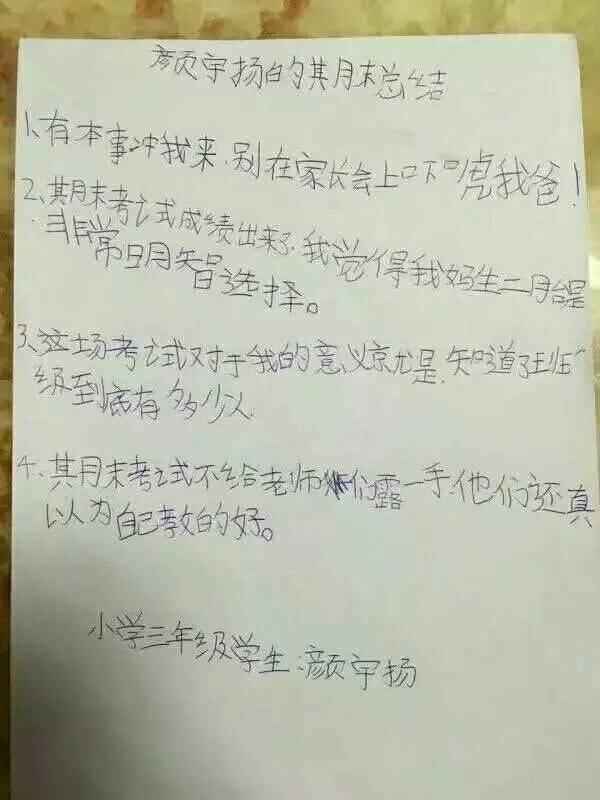 颜宇扬的期月末总结
1、有本事冲我来,别在家长会上吓唬我爸!
2、期末考试成绩出来了,我觉得我妈生二胎是
非常明智选择。
3、这场考试对于我的意义就是,知道了班
级到底有多少人.
4、期末考试不给老师们露一手,他们还真
以为自己教的好。
小学三年级学生:颜宇扬